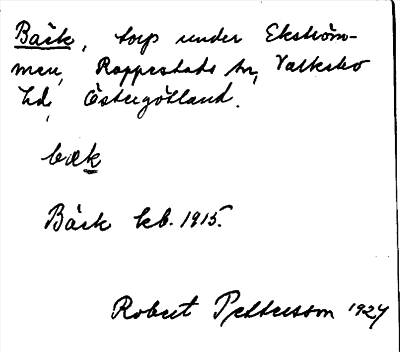 Bäck, torp under Ekström-
men, Rappestads sn, Valkebo
hd, Östergötland.
bæk
Bäck kb. 1915.
Robert Pettersson 1927